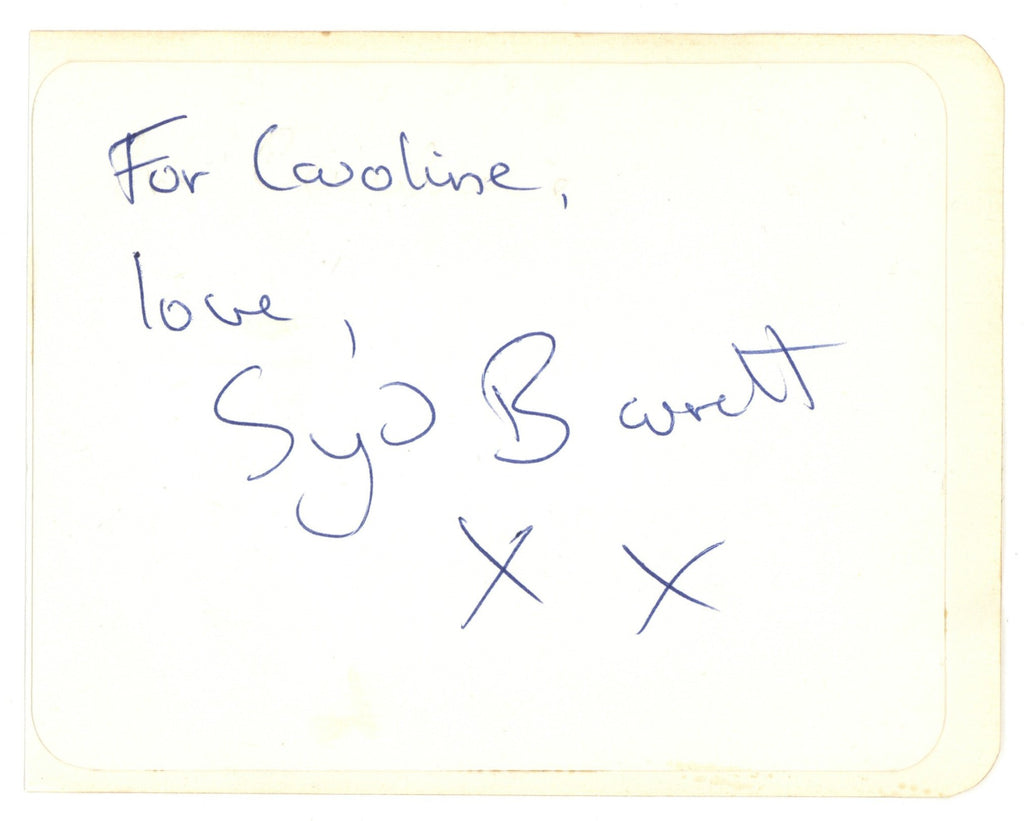 For Caroline,
love,
Syd Barrett
X X